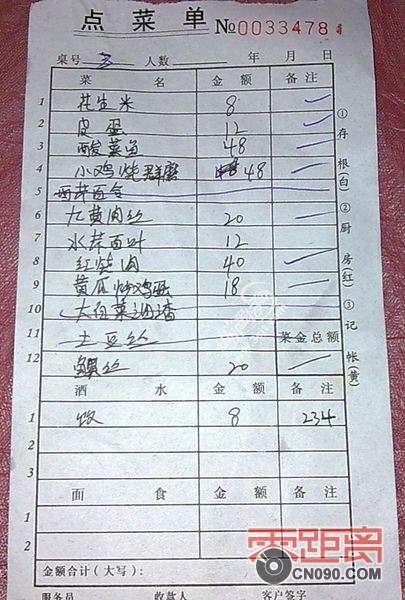 点菜单 No 0033478
桌号 3 人数 年 月 日
菜名 金额 备注
1 花生米 8
2 皮蛋 12
3 酸菜鱼 48
4 小鸡炖群蘑 48 48
5 西芹百合
6 九黄肉丝 20
7 水芹百叶 12
8 红烧肉 40
9 黄瓜炒鸡蛋 18
10 大白菜油渣
11 土豆丝 菜金总额
12 鳝丝 20
酒水 金额 备注
1 饭 8 234
2
3
面食 金额 备注
1
2
金额合计(大写):
服务员 收款人 客户签字
①存根(白)②厨房(红)③记帐(黄)
零距离
CN090.COM